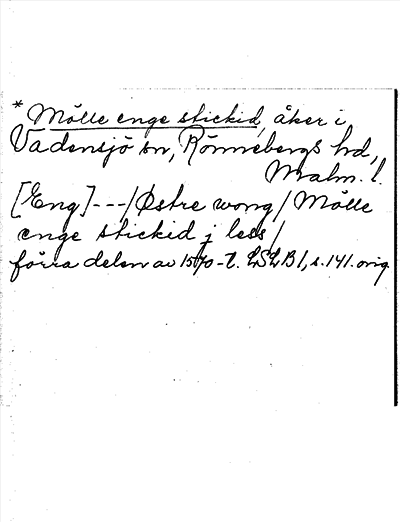 * Mölle enge stickid, åker i
Vadensjö sn, Rönnebergs hd,
Malm. l.
[Eng]---/Østre wong/Mölle
enge stickid j less/
förra delen av 1570-t. LSLB1, s. 141. orig.